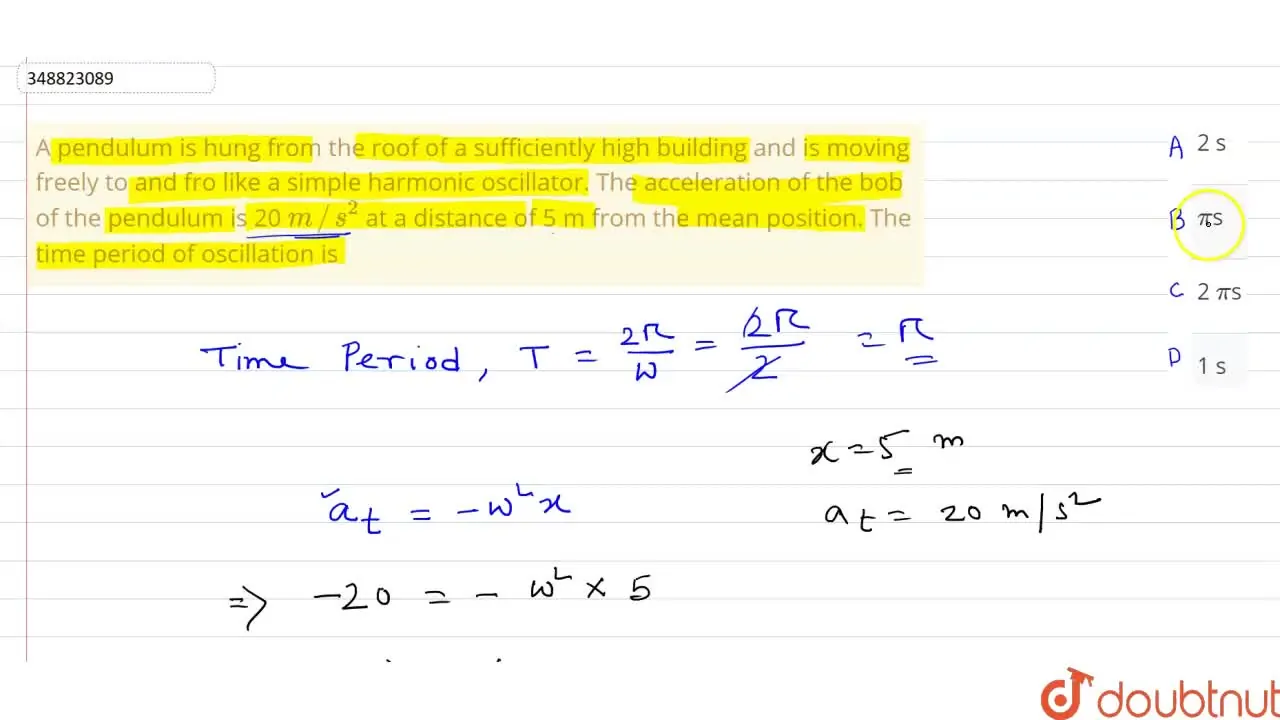 348823089
A pendulum is hung from the roof of a sufficiently high building and is moving
freely to and fro like a simple harmonic oscillator. The acceleration of the bob
of the pendulum is 20 m/s² at a distance of 5 m from the mean position. The
time period of oscillation is
A 2 s
B πs
C 2 πs
D 1 s
Time Period, T = 2π/ω = 2π/2 = π
x = 5 m
a_t = -ω²x
a_t = 20 m/s²
=> -20 = - ω² × 5
doubtnut